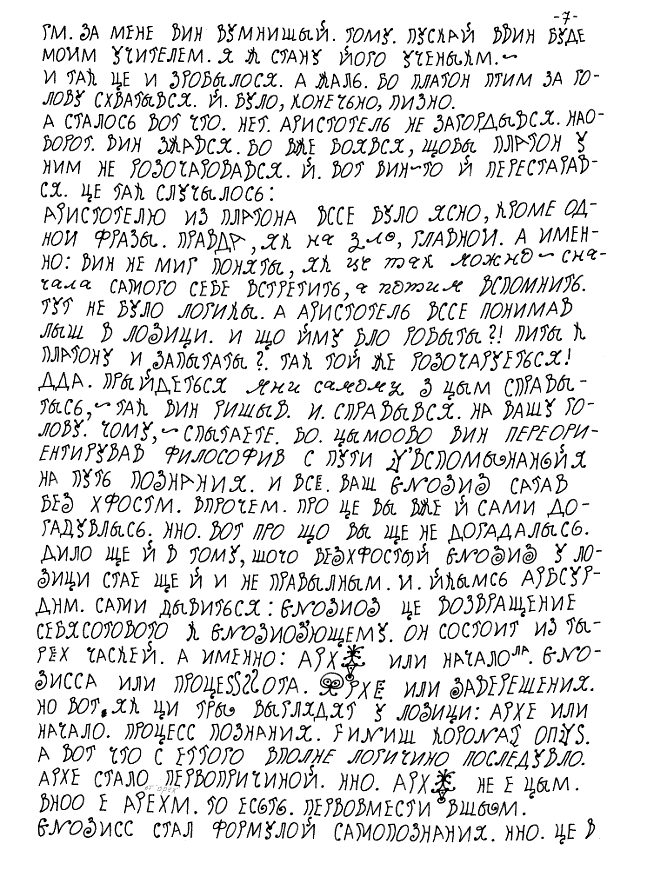 -7-
ГМ. ЗА МЕНЕ ВИН ВУМНИЩЫЙ. ТОМУ. ПУСКАЙ ВВИН БУДЕ
МОИМ УЧИТЕЛЕМ. Я Ж СТАНУ ЙОГО УЧЕНЫКМ.~
И ТАК ЦЕ И ЗРОБЫЛОСЯ. А ЖАЛЬ. БО ПЛАТОН ПТИМ ЗА ГО-
ЛОВУ СХВАТЫВСЯ. Й. БУЛО, КОНЕЧЬНО, ПИЗНО.
А СТАЛОСЬ ВОТ ЧТО. НЕТ. АРИСТОТЕЛЬ НЕ ЗАГОРДЫВСЯ. НАО-
БОРОТ. ВИН ЗЖАВСЯ. БО ВЖЕ БОЯВСЯ, ЩОБЫ ПЛАТОН У
НИМ НЕ РОЗОЧАРОВАВСЯ. Й. ВОТ ВИН~ТО Й ПЕРЕСТАРАВ-
СЯ. ЦЕ ТАК СЛУЧЫЛОСЬ:
АРИСТОТЕЛЮ ИЗ ПЛАТОНА ВССЕ БУЛО ЯСНО, КРОМЕ ОД-
НОИ ФРАЗЫ. ПРАВДА, ЯК на зло, ГЛАВНОИ. А ИМЕН-
НО: ВИН НЕ МИГ ПОНЯТЫ, ЯК це так можно ~ сна-
чала САМОГО СЕБЕ ВСТРЕТИТЬ, а потим ВСПОМНИТЬ.
ТУТ НЕ БУЛО ЛОГИКЫ. А АРИСТОТЕЛЬ ВССЕ ПОНИМАВ
ЛЫШ В ЛОЗИЦИ. И ЩО ЙМУ БЛО РОБЫТЫ?! ПИТЫ К
ПЛАТОНУ И ЗАПЫТАТЫ?. ТАК ТОЙ ЖЕ РОЗОЧАРУЕТЬСЯ!
ДДА. ПРЫЙДЕТЬСЯ мни самому З ЦЫМ СПРАВЫ-
ТЫСЬ, ~ ТАК ВИН РИШЫВ. И. СПРАВЫВСЯ. НА ВАШУ ГО-
ЛОВУ. ЧОМУ, ~ СПЫТАЕТЕ. БО. ЦЫМООВО ВИН ПЕРЕОРИ-
ЕНТИРУВАВ ФИЛОСОФИВ С ПУТИ ВСПОМЫНАНЬЙЯ
НА ПУТЬ ПОЗНАНИЯ. И ВСЕ. ВАШ GNOЗИЗ САТАВ
БЕЗ ХФОСТМ. ВПРОЧЕМ. ПРО ЦЕ ВЫ ВЖЕ Й САМИ ДО-
ГАДУВЛЫСЬ. ННО. ВОТ ПРО ЩО ВЫ ЩЕ НЕ ДОГАДАЛЫСЬ.
ДИЛО ЩЕ Й В ТОМУ, ШОЧО БЕЗХФОСТЫЙ GNOЗИЗ У ЛО-
ЗИЦИ СТАЕ ЩЕ Й И НЕ ПРАВЫЛНЫМ. И. ЙКЫМСЬ АРБСУР-
ДНМ. САМИ ДЫВИТЬСЯ: GNOЗИОЗ ЦЕ ВОЗВРАЩЕНИЕ
СЕБЯСОТОВОГО К GNOЗИОЗЮЩЕМУ. ОН СОСТОИТ ИЗ ТЫ-
РЕХ ЧАСКЕЙ. А ИМЕННО: АРХ ИЛИ НАЧАЛОЛА. GNO-
ЗИССА ИЛИ ПРОЦЕSSСОТА. РХЕ ИЛИ ЗАВЕРЕЩЕНИЯ.
НО ВОТ. ЯК ЦИ ТРЫ ВЫГЛЯДЯТ У ЛОЗИЦИ: АРХЕ ИЛИ
НАЧАЛО. ПРОЦЕСС ПОЗНАНИЯ. FИNИШ КОРОМАТ ОПУS.
А ВОТ ЧТО С ЕТТОГО ВПОЛНЕ ЛОГИЧИНО ПОСЛЕДУВЛО.
АРХЕ СТАЛО ПЕРВОПРИЧИНОЙ. ННО. АРХ НЕ Е ЦЫМ.
ВНОО Е АРЕХМ. ТО ЕСЬТЬ. ПЕРВОВМЕСТИ ВЩЫМ.
GNOЗИСС СТАЛ ФОРМУЛОЙ САМОПОЗНАНИЯ. ННО. ЦЕ В